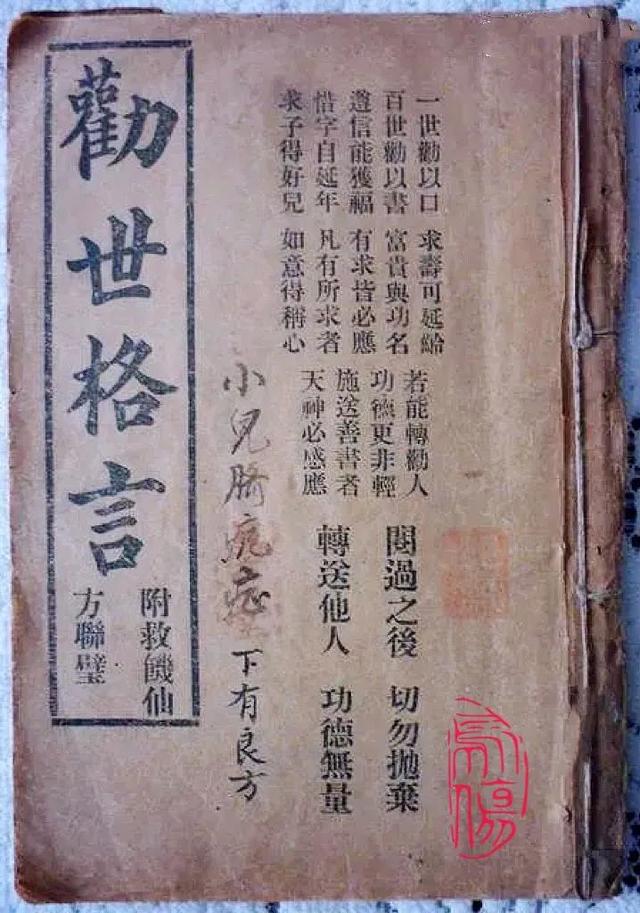 一世勸以口 求壽可延給
百世勸以書 富貴與功名
遵信能獲福 有求皆必應
惜字自延年 凡有所求者
求子得好兒 如意得稱心
若能轉勸人
功德更非輕
施送善書者
天神必感應
閱過之後 切勿拋棄
轉送他人 功德無量
小兒臍疯症 下有良方
勸世格言
附救饑仙
方聯璧